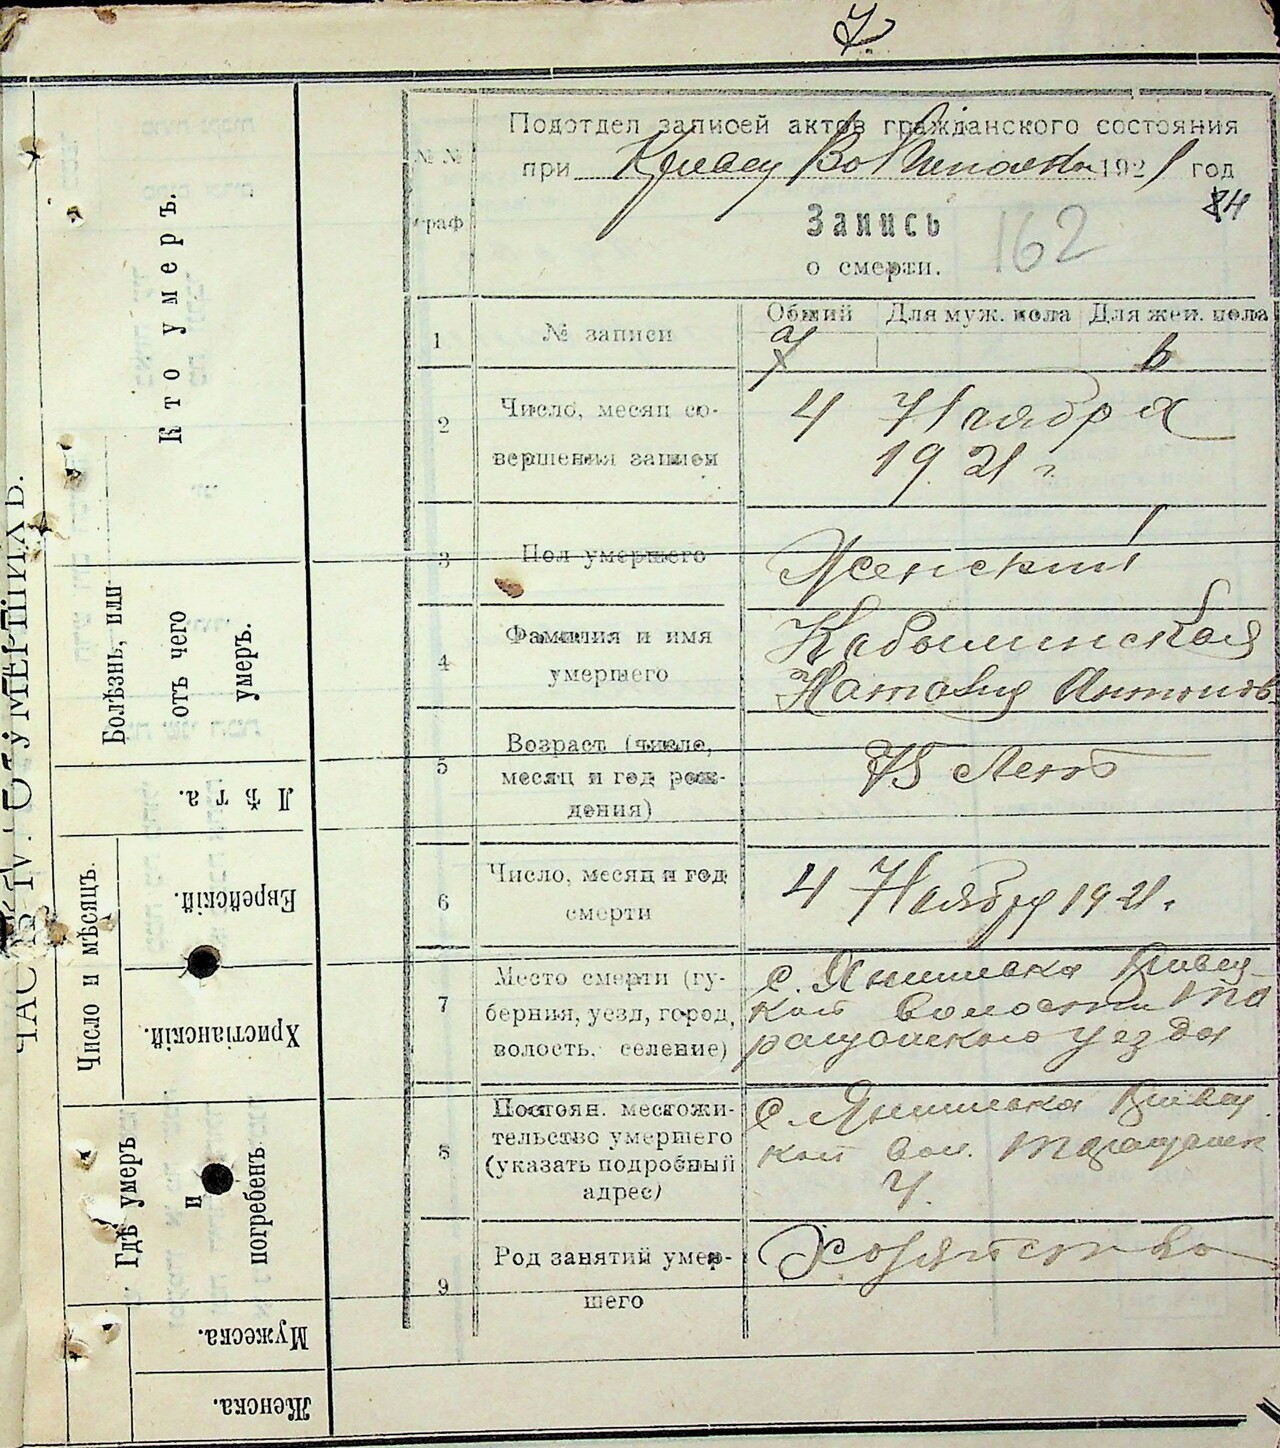 7.
Подотдел записей актов гражданского состояния
при 1921 год
84
№ № граф
Запись
162
о смерти.
1 № записи Общий Для муж. пола Для жен. пола
2 Число, месяц со-
вершения записи
4 Ноября
1921 г.
3 Пол умершего Женский
4 Фамилия и имя
умершего
Наталия Антонов
5 Возраст (число,
месяц и год рож-
дения)
75 летъ
6 Число, месяц и год
смерти
4 Ноября 1921.
7 Место смерти (гу-
берния, уезд, город,
волость, селение)
с. Янишевка Кривец-
кой волости Та
ращанского уезда
8 Постоян. местожи-
тельство умершего
(указать подробный
адрес)
с. Янишевка Кривец
кой вол. Таращанск
у.
9 Род занятий умер-
шего
Хозяйство
ЧАСТЬ IV. О УМЕРШИХЪ.
Кто умеръ.
Болѣзнь, или
отъ чего
умеръ.
Лѣта.
Число и мѣсяцъ.
Еврейскій.
Христіанскій.
Гдѣ умеръ
и
погребенъ
Мужеска.
Женска.